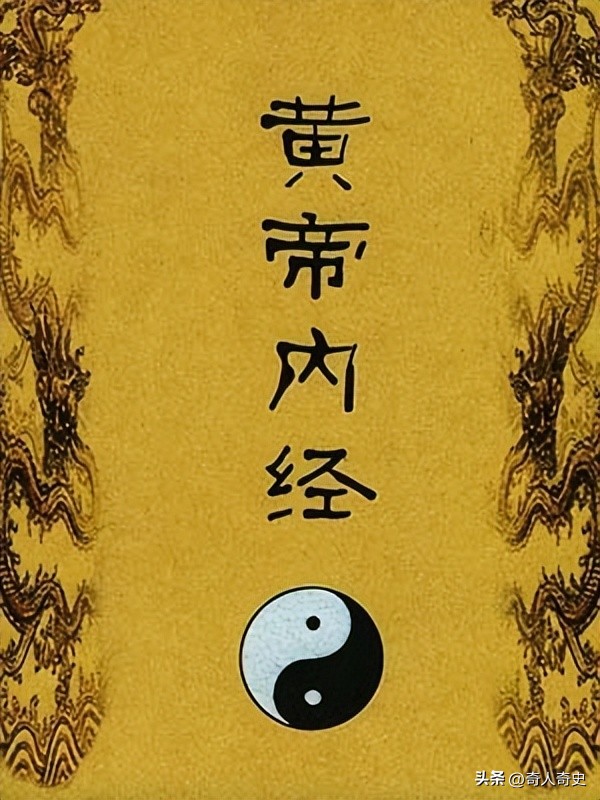 黄帝内经
头条 @奇人奇史